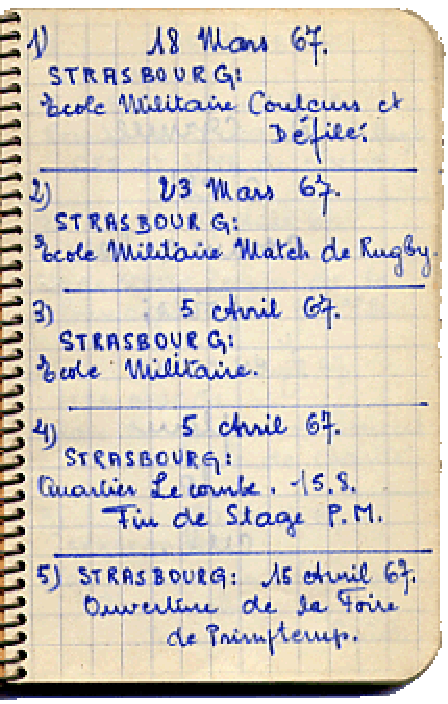 1) 18 Mars 67.
STRASBOURG:
Ecole Militaire Couleurs et
Défilé.
2) 23 Mars 67.
STRASBOURG:
Ecole Militaire Match de Rugby.
3) 5 Avril 67.
STRASBOURG:
Ecole Militaire.
4) 5 Avril 67.
STRASBOURG:
Quartier Lecourbe.
Fin de Stage P.M.
5) STRASBOURG: 15 Avril 67.
Ouverture de la Foire
de Primptemps.